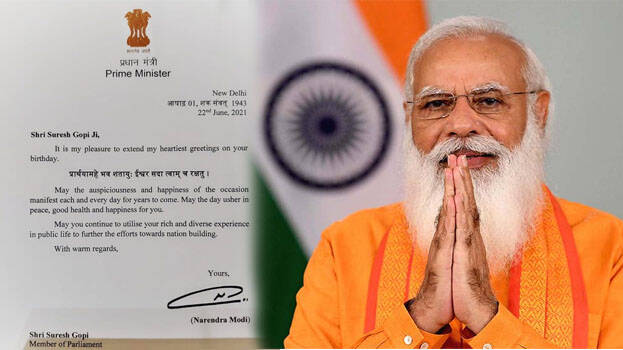 सत्यमेव जयते
प्रधान मंत्री
Prime Minister
New Delhi
आषाढ़ 01, शक संवत् 1943
22nd June, 2021
Shri Suresh Gopi Ji,
It is my pleasure to extend my heartiest greetings on your
birthday.
प्रार्थयामहे भव शतायुः ईश्वर सदा त्वाम् च रक्षतु ।
May the auspiciousness and happiness of the occasion
manifest each and every day for years to come. May the day usher in
peace, good health and happiness for you.
May you continue to utilise your rich and diverse experience
in public life to further the efforts towards nation building.
With warm regards,
Yours,
(Narendra Modi)
Shri Suresh Gopi
Member of Parliament